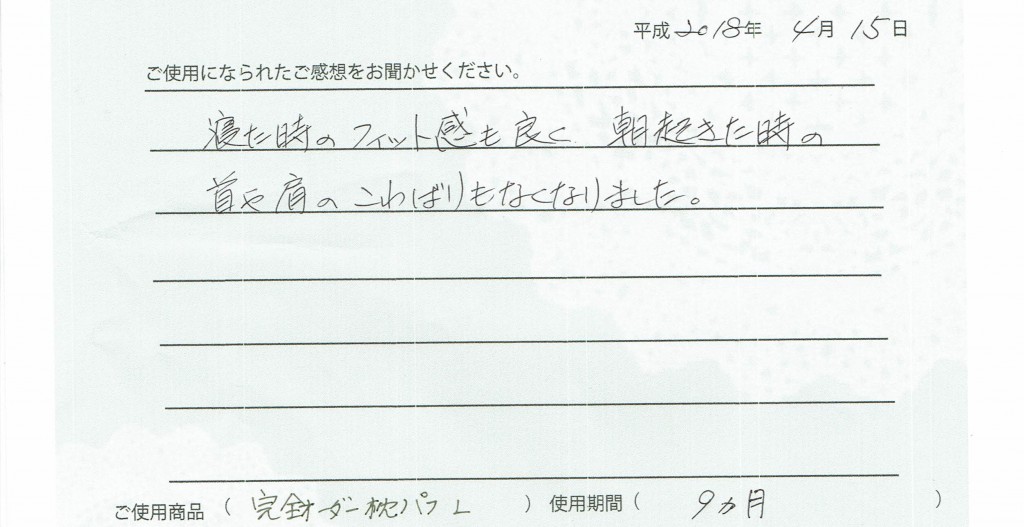 平成2018年 4月 15日
ご使用になられたご感想をお聞かせください。
寝た時のフィット感も良く 朝起きた時の
首や肩のこわばりもなくなりました。
ご使用商品 ( 枕パフL ) 使用期間 ( 9ヵ月 )